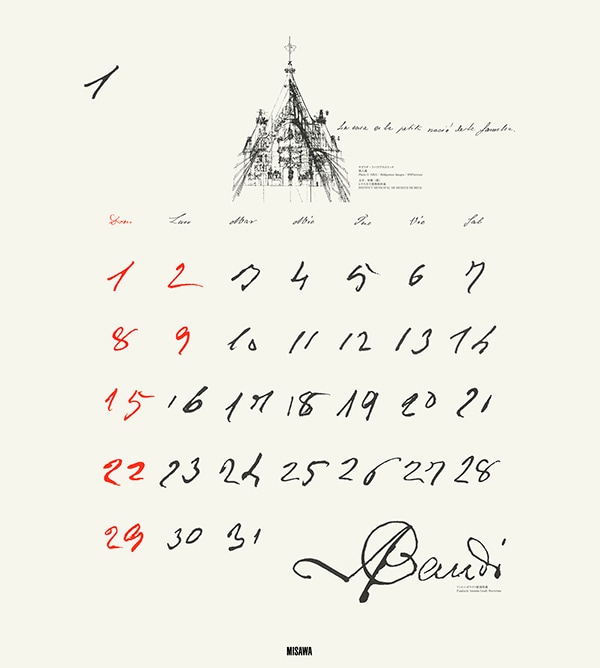 1
La casa es la petita nació de la família.
Dom Lun Mar Mie Jue Vie Sab
1 2 3 4 5 6 7
8 9 10 11 12 13 14
15 16 17 18 19 20 21
22 23 24 25 26 27 28
29 30 31
Gaudi
MISAWA